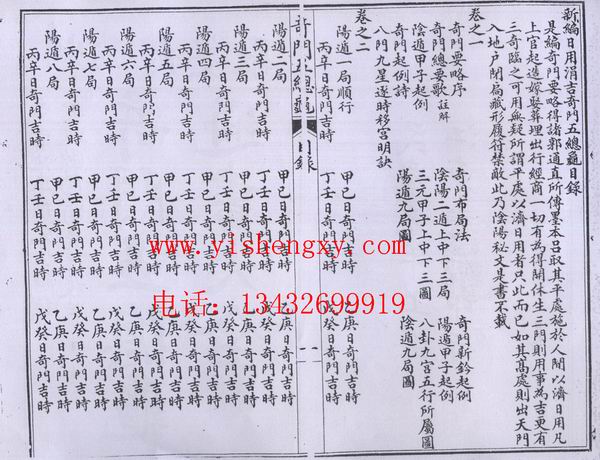 新編日用涓吉奇門五總龜目錄
是編奇門要略得諸郭通直所傳墨本取其平處施於人間以濟日用凡
上官起造嫁娶葬埋出行經商一切有為得開休生三門則用事為吉更有
三奇臨之可用無疑所謂平處以濟日用者只此而已如其高處則出天門
入地戶閉局藏形履符禁敵此乃陰陽秘文是書不載
卷之一
奇門要略序 奇門布局法 奇門新鈐起例
奇門總要歌註解 陰陽二遁上中下三局 陽遁甲子起例
陰遁甲子起例 三元甲子上中下三圖 八卦九宮五行所屬圖
奇門起例詩 陽遁九局圖 陰遁九局圖
八門九星逐時移宮明訣
卷之二
陽遁一局順行 甲己日奇門吉時 乙庚日奇門吉時
丙辛日奇門吉時 丁壬日奇門吉時 戊癸日奇門吉時
奇門五總龜 目錄 一
陽遁二局 甲己日奇門吉時 乙庚日奇門吉時
丙辛日奇門吉時 丁壬日奇門吉時 戊癸日奇門吉時
陽遁三局 甲己日奇門吉時 乙庚日奇門吉時
丙辛日奇門吉時 丁壬日奇門吉時 戊癸日奇門吉時
陽遁四局 甲己日奇門吉時 乙庚日奇門吉時
丙辛日奇門吉時 丁壬日奇門吉時 戊癸日奇門吉時
陽遁五局 甲己日奇門吉時 乙庚日奇門吉時
丙辛日奇門吉時 丁壬日奇門吉時 戊癸日奇門吉時
陽遁六局 甲己日奇門吉時 乙庚日奇門吉時
丙辛日奇門吉時 丁壬日奇門吉時 戊癸日奇門吉時
陽遁七局 甲己日奇門吉時 乙庚日奇門吉時
丙辛日奇門吉時 丁壬日奇門吉時 戊癸日奇門吉時
陽遁八局 甲己日奇門吉時 乙庚日奇門吉時
丙辛日奇門吉時 丁壬日奇門吉時 戊癸日奇門吉時
www.yishengxy.com
电话：13432699919